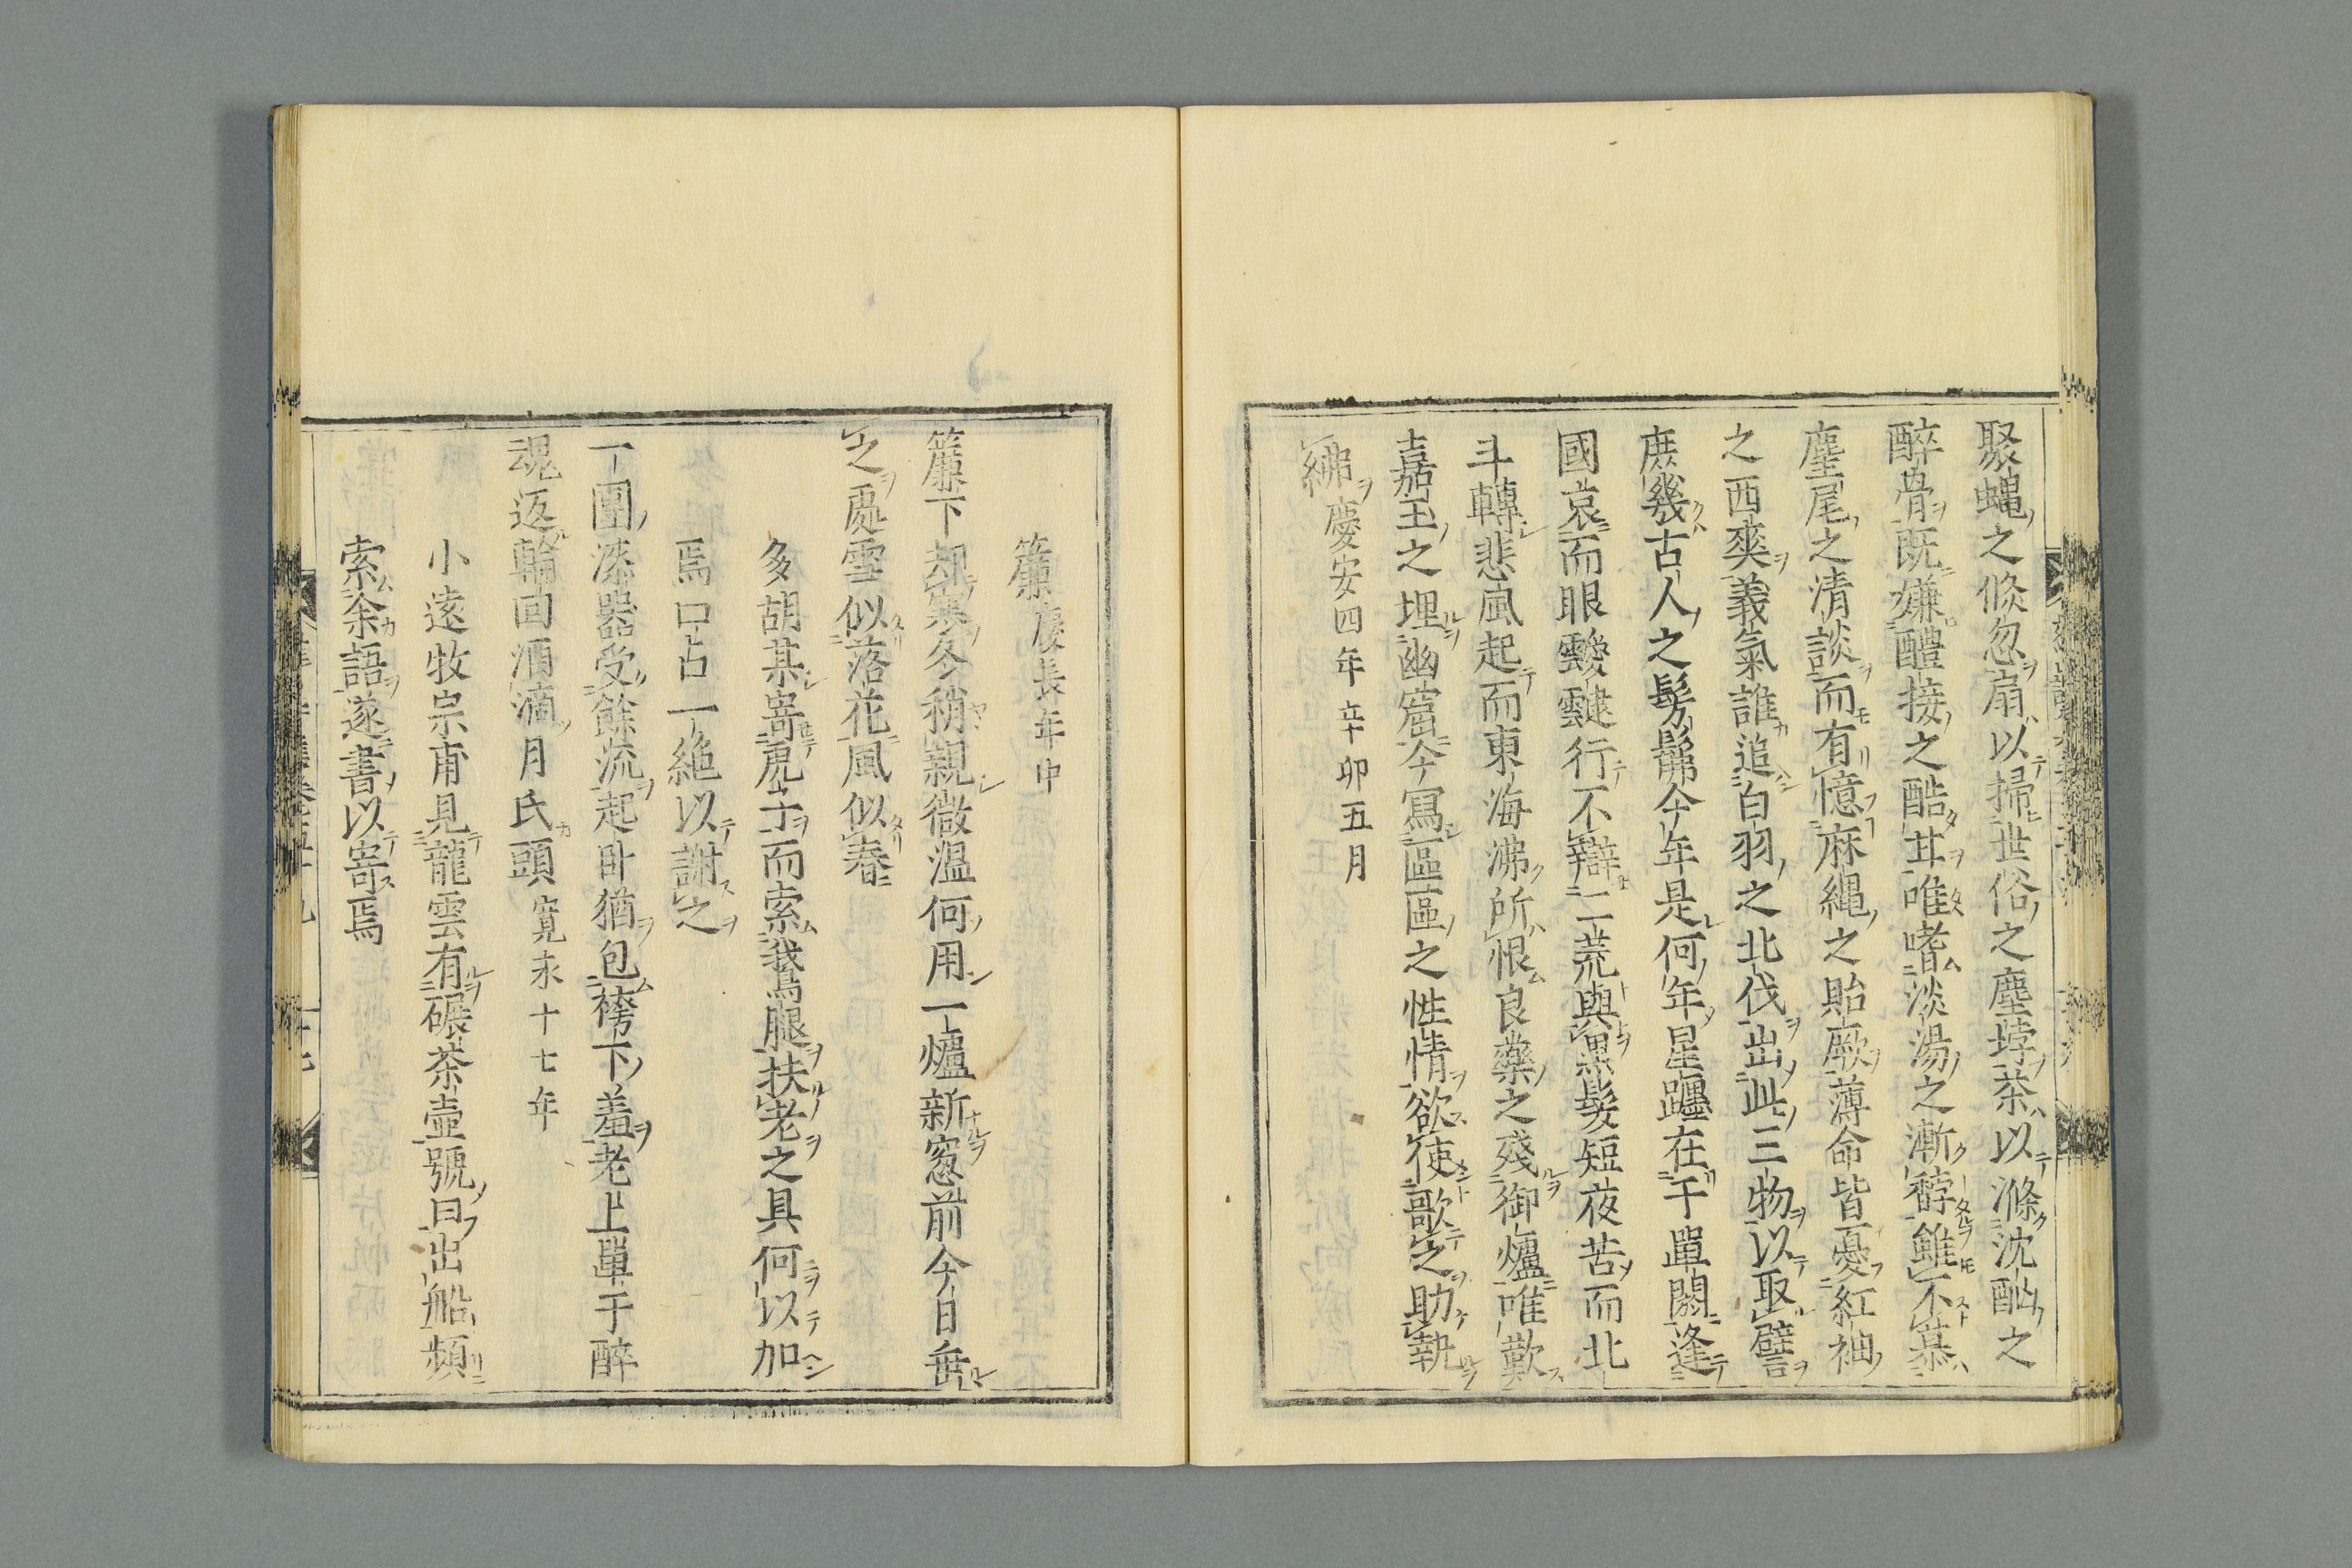 聚蝿之倐忽扇以掃世俗之塵埻茶以滌沈酗之
醉骨既嫌醴接之酷甘唯嗜淡湯之漸醇雖不慕
麈尾之清談而有憶麻縄之貽厥薄命皆憂紅袖
之西爽義氣誰追白羽之北伐出此三物以取譬
庶幾古人之髣髴今年是何年星躔在千單閼逢
國哀而眼靉靆行不辯一二荒與黒髪短夜苦而北
斗轉悲風起而東海沸所恨良藥之殘御爐唯歎
嘉玉之埋幽窟今寫區區之性情欲使歌之助執
紼慶安四年辛卯五月
簾慶長年中
簾下却寒冬稍親微温何用一爐新窓前今日垂
之處雪似落花風似春
多胡某寄虎子而索我爲腿扶老之具何以加
焉口占一絶以謝之
一團漆器受餘流起臥猶包袴下羞老上單于醉
魂返輪回酒滴月氏頭寛永十七年
小遠牧宗甫見龍雲有碾茶壷號曰出船頻
索余語遂書以寄焉